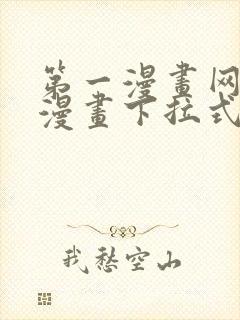 第一漫畫网
漫畫下拉式
我愁空山